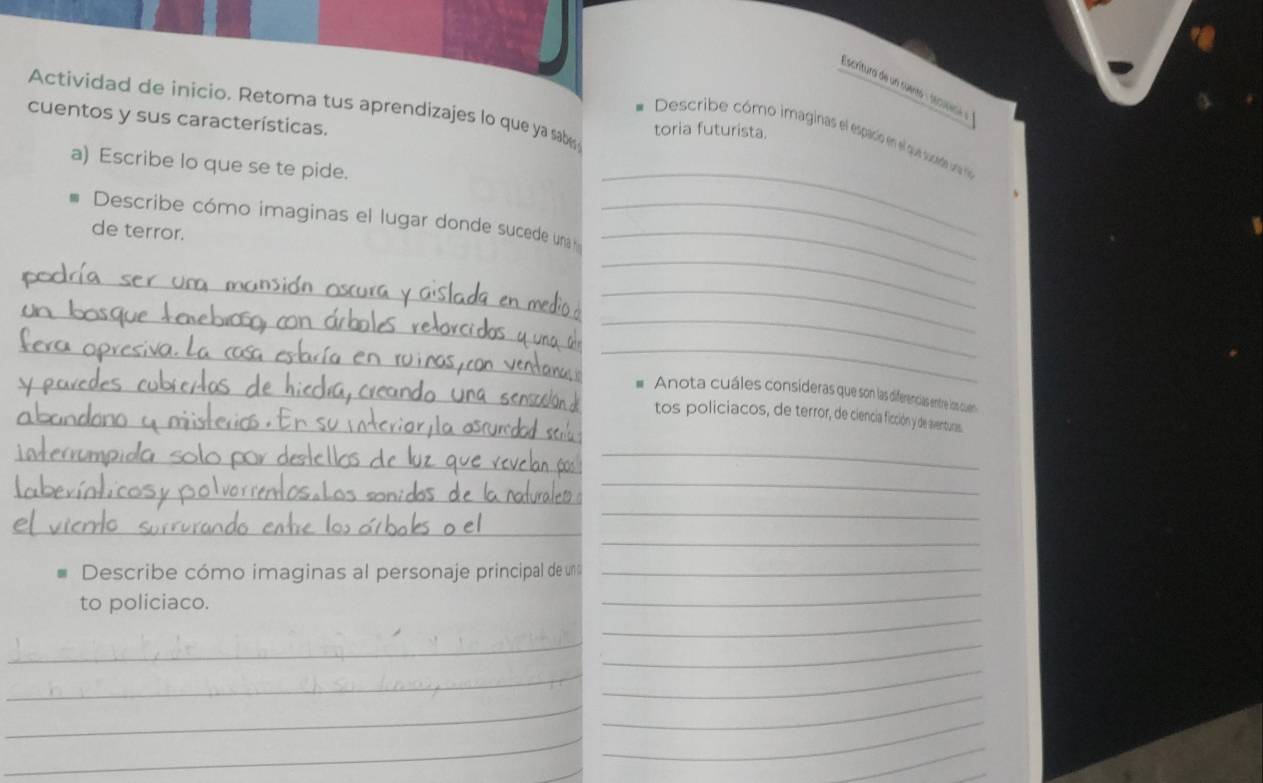 Actividad de inicio. Retoma tus aprendizajes lo que ya sabes
cuentos y sus características.
a) Escribe lo que se te pide.
Describe cómo imaginas el lugar donde sucede una
de terror.
podría ser una mansión oscura y aislada en medio
un bosque tenebroso, con árboles retorcidos y una
fera opresiva. La casa estaría en ruinas, con
y paredes cubiertas de hiedra, creando una
abandono y misterio. En su interior, la oscuridad
interrumpida solo por destellos de luz que revelan
laberínticos y polvorrentos. Los sonidos de la
el viento surrurando entre los árboles o el
Describe cómo imaginas al personaje principal de
to policiaco.
Escritura de un cuento
Describe cómo imaginas el espacio en el que sucede una
toria futurista.
Anota cuáles consideras que son las diferencias entre los
tos policiacos, de terror, de ciencia ficción y de aventuras.